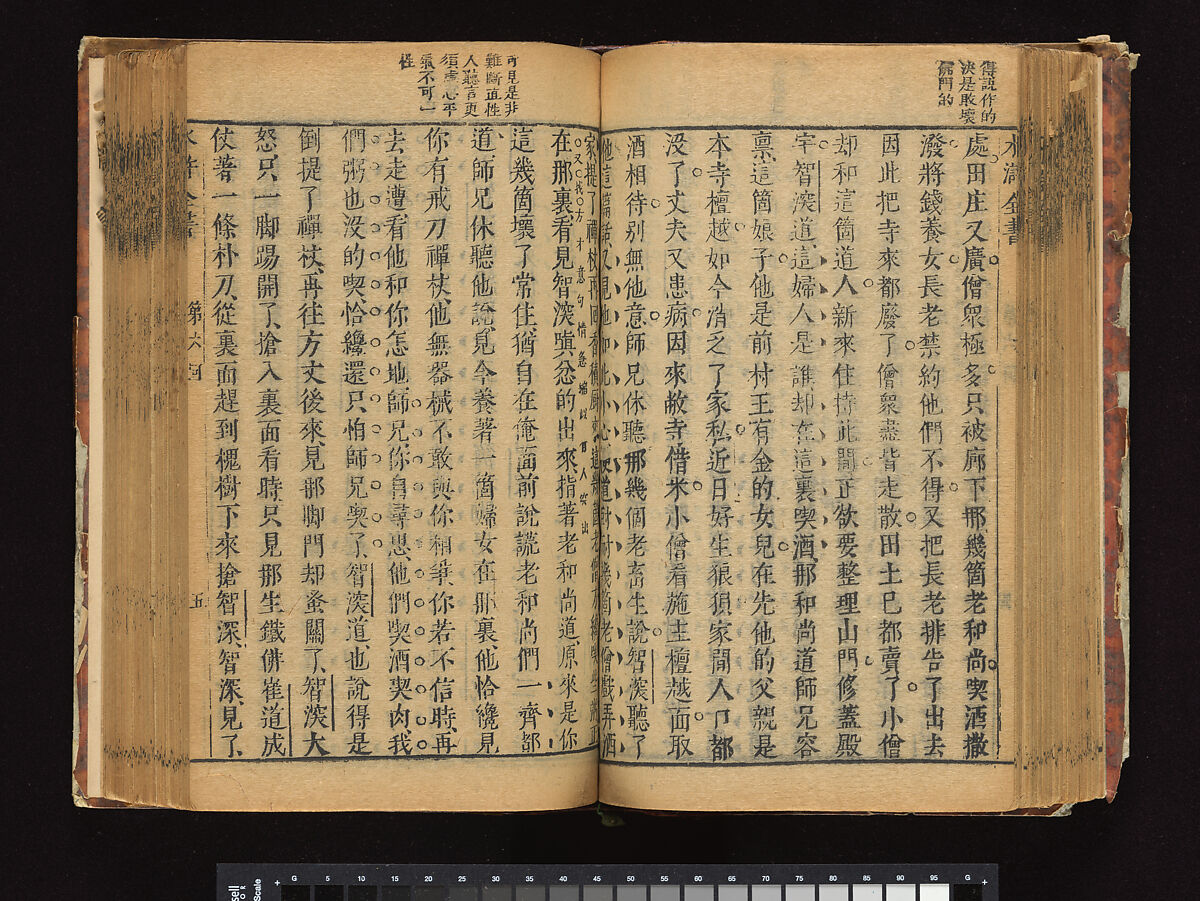 得說作的
決是敢壞
佛門的
水滸全書
處田庄又廣僧衆極多只被廊下那幾箇老和尚喫酒撒
潑將錢養女長老禁約他們不得又把長老排告了出去
因此把寺來都廢了僧衆盡皆走散田土已都賣了小僧
却和這箇道人新來住持此間正欲要整理山門修蓋殿
宇智深道這婦人是誰却在這裏喫酒那和尚道師兄容
禀這箇娘子他是前村王有金的女兒在先他的父親是
本寺檀越如今消乏了家私近日好生狼狽家間人口都
没了丈夫又患病因來敝寺借米小僧看施主檀越面取
酒相待别無他意師兄休聽那幾個老畜生說智深聽了
他這篇話又見他如此小心便道叵耐幾箇老僧戲弄洒
可見是非
難斷直性
人聽言更
須虚心平
氣不可一
性
家提了禪杖再回香積厨來這幾箇老僧方纔喫些粥正
在那裏看見智深嗔忿的出來指著老和尚道原來是你
這幾箇壞了常住猶自在俺面前說謊老和尚們一齊都
道師兄休聽他說見今養著一箇婦女在那裏他恰纔見
你有戒刀禪杖他無器械不敢與你相爭你若不信時再
去走遭看他和你怎地師兄你自尋思他們喫酒喫肉我
們粥也没的喫恰纔還只怕師兄喫了智深道也說得是
倒提了禪杖再往方丈後來見那脚門却蚤關了智深大
怒只一脚踢開了搶入裏面看時只見那生鐵佛崔道成
仗著一條朴刀從裏面趕到槐樹下來搶智深智深見了
水滸全書 第六回 五